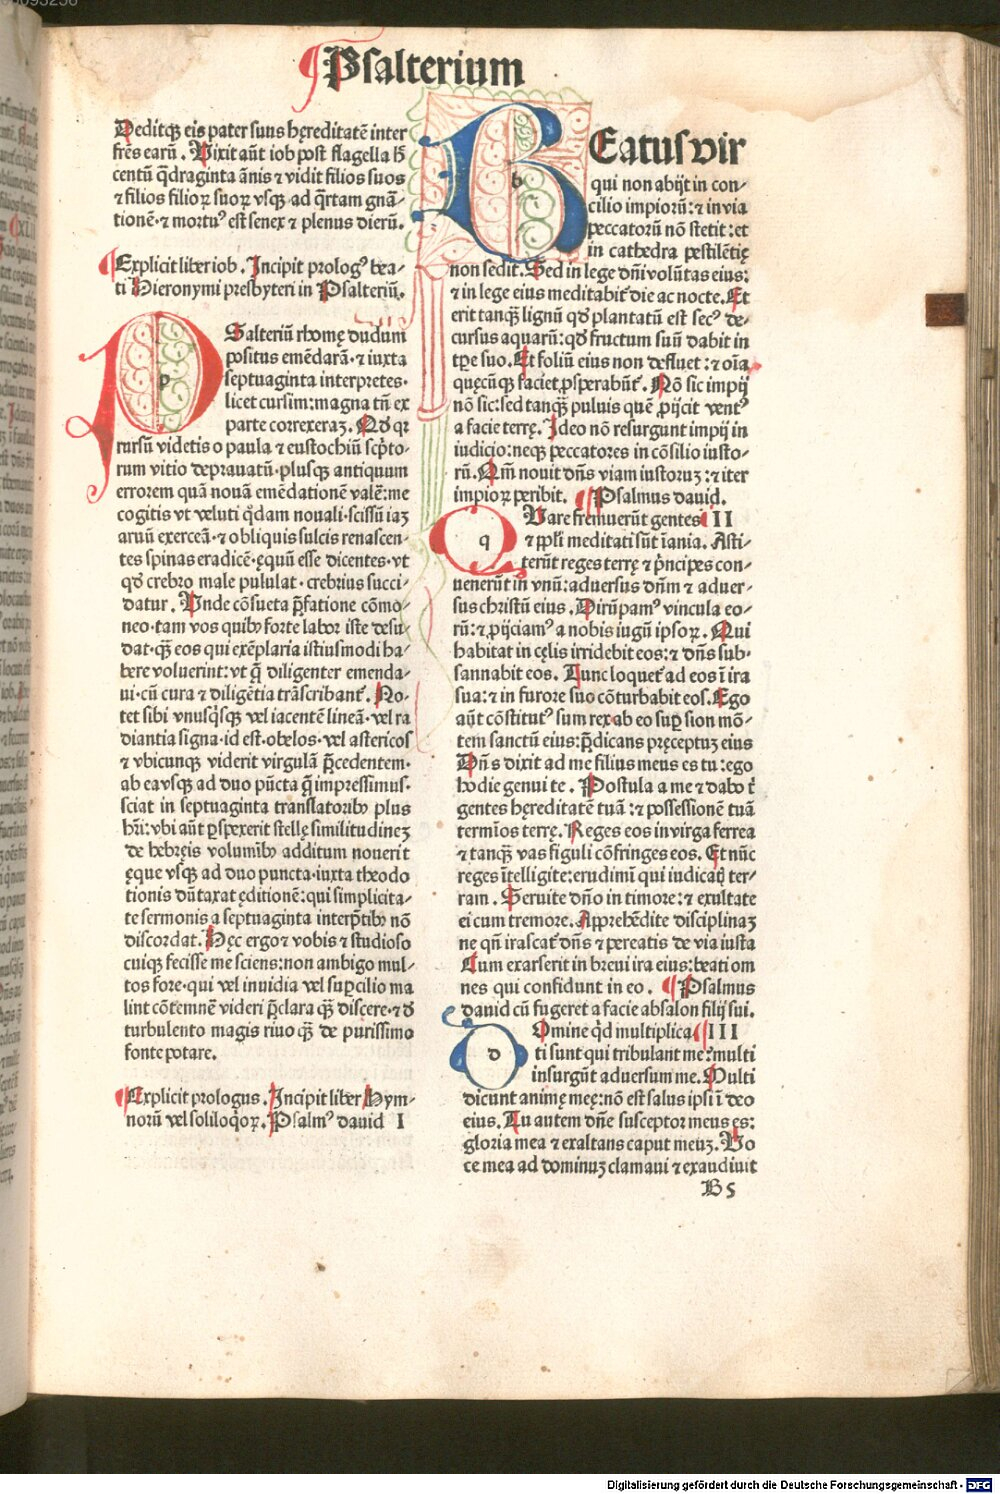 Psalterium
Deditq̃ eis pater suus hęreditatē inter
fr̃es earũ. Vixit aũt iob post flagella h̃
centũ q̃draginta ãnis ⁊ vidit filios suos
⁊ filios filioꝝ suoꝝ vsq̃ ad q̃rtam gnã⸗
tionē· ⁊ mortuꝰ est senex ⁊ plenus dierũ.
Explicit liber iob. Incipit prologꝰ bea⸗
ti Hieronymi presbyteri in Psalteriũ.
pSalteriũ rhomę dudum
positus emēdarã· ⁊ iuxta
septuaginta interpretes·
licet cursim: magna tñ ex
parte correxeraz. Qď qꝛ
rursũ videtis o paula ⁊ eustochiũ scp̃to⸗
rum vitio deprauatũ· plusq̃ antiquum
errorem quã nouã emēdationē valē: me
cogitis vt veluti q̃dam nouali· scissũ iaz
aruũ exerceã· ⁊ obliquis sulcis renascen⸗
tes spinas eradicē· ęquũ esse dicentes· vt
qď crebro male pululat· crebrius succi⸗
datur. Unde cõsueta p̃fatione cõmo⸗
neo· tam vos quibꝰ forte labor iste desu⸗
dat· q̃ eos qui exēplaria istiusmodi ha⸗
bere voluerint: vt q̃ diligenter emenda⸗
ui· cũ cura ⁊ diligētia trãscribant̃. No⸗
tet sibi vnusq̃sq̃ vel iacentē lineã· vel ra
diantia signa· id est· obelos· vel astericos
⁊ vbicunq̃ viderit virgulã p̃cedentem·
ab ea vsq̃ ad duo pũcta q̃ impressimus·
sciat in septuaginta translatoribꝰ plus
hr̃i: vbi aũt p̱spexerit stellę similitudinez
de hebręis voluminibꝰ additum nouerit
ęque vsq̃ ad duo puncta· iuxta theodo
tionis dũtaxat ęditionē: qui simplicita⸗
te sermonis a septuaginta interp̃tibꝰ nõ
discordat. Hęc ergo ⁊ vobis ⁊ studioso
cuiq̃ fecisse me sciens: non ambigo mul⸗
tos fore· qui vel inuidia vel sup̱cilio ma
lint cõtemnē videri p̃clara q̃ discere· ⁊ ď
turbulento magis riuo q̃ de purissimo
fonte potare.
Explicit prologus. Incipit liber Hym⸗
norũ vel soliloq̃oꝝ. Psalmꝰ dauid I
bEatus vir
qui non abijt in con⸗
cilio impiorũ: ⁊ in via
peccatorũ nõ stetit: et
in cathedra pestilētię
non sedit. Sed in lege dñi volũtas eius:
⁊ in lege eius meditabit̃ die ac nocte. Et
erit tanq̃ lignũ qď plantatũ est secꝰ de⸗
cursus aquarũ: qď fructum suũ dabit in
tp̃e suo. Et foliũ eius non defluet: ⁊ oĩa
quęcũq̃ faciet ꝓsperabũt̃. Nõ sic impij
nõ sic: sed tanq̃ puluis quē ꝓijcit ventꝰ
a facie terrę. Ideo nõ resurgunt impij in
iudicio: neq̃ peccatores in cõsilio iusto⸗
rũ. Qm̃ nouit dñs viam iustoruz: ⁊ iter
impioꝝ peribit. Psalmus dauid.
qUare fremuerũt gentes II
⁊ pp̃li meditati sũt ĩania. Asti⸗
terũt reges terrę ⁊ p̃ncipes con⸗
uenerũt in vnũ: aduersus dñm ⁊ aduer⸗
sus christũ eius. Dirũpamꝰ vincula eo⸗
rũ: ⁊ ꝓijciamꝰ a nobis iugũ ipsoꝝ. Qui
habitat in cęlis irridebit eos: ⁊ dñs sub⸗
sannabit eos. Tunc loquet̃ ad eos ĩ ira
sua: ⁊ in furore suo cõturbabit eos. Ego
aũt cõstitutꝰ sum rex ab eo sup̱ sion mõ⸗
tem sanctũ eius: p̃dicans pręceptuz eius
Dñs dixit ad me filius meus es tu: ego
hodie genui te. Postula a me ⁊ dabo t̃
gentes hęreditatē tuã: ⁊ possessionē tuã
terminos terrę. Reges eos in virga ferrea
⁊ tanq̃ vas figuli cõfringes eos. Et nũc
reges ĩtelligite: erudimĩ qui iudicatꝭ ter⸗
ram. Seruite dño in timore: ⁊ exultate
ei cum tremore. Apprehēdite disciplinaz
ne qñ irascat̃ dñs ⁊ pereatis de via iusta
Cum exarserit in breui ira eius: beati om
nes qui confidunt in eo. Psalmus
dauid cũ fugeret a facie absalon filij sui.
dOmine q̇d multiplica III
ti sunt qui tribulant me? multi
insurgũt aduersum me. Multi
dicunt animę męę: nõ est salus ipsi ĩ deo
eius. Tu autem dñe susceptor meus es:
gloria mea ⁊ exaltans caput meuz. Vo
ce mea ad dominuz clamaui ⁊ exaudiuit
B5
Digitalisierung gefördert durch die Deutsche Forschungsgemeinschaft - DFG